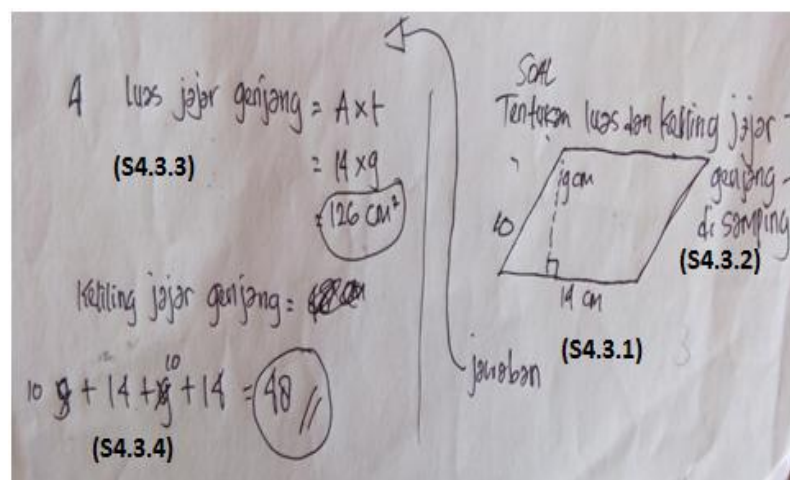 4 luas jajar genjang = A x t
(S4.3.3)
= 14 x 9
= 126 cm²
Keliling jajar genjang =
10 + 14 + 10 + 14 = 48
(S4.3.4)
SOAL
Tentukan luas dan keliling jajar-
genjang
di samping
(S4.3.2)
9 cm
10
14 cm
(S4.3.1)
jawaban